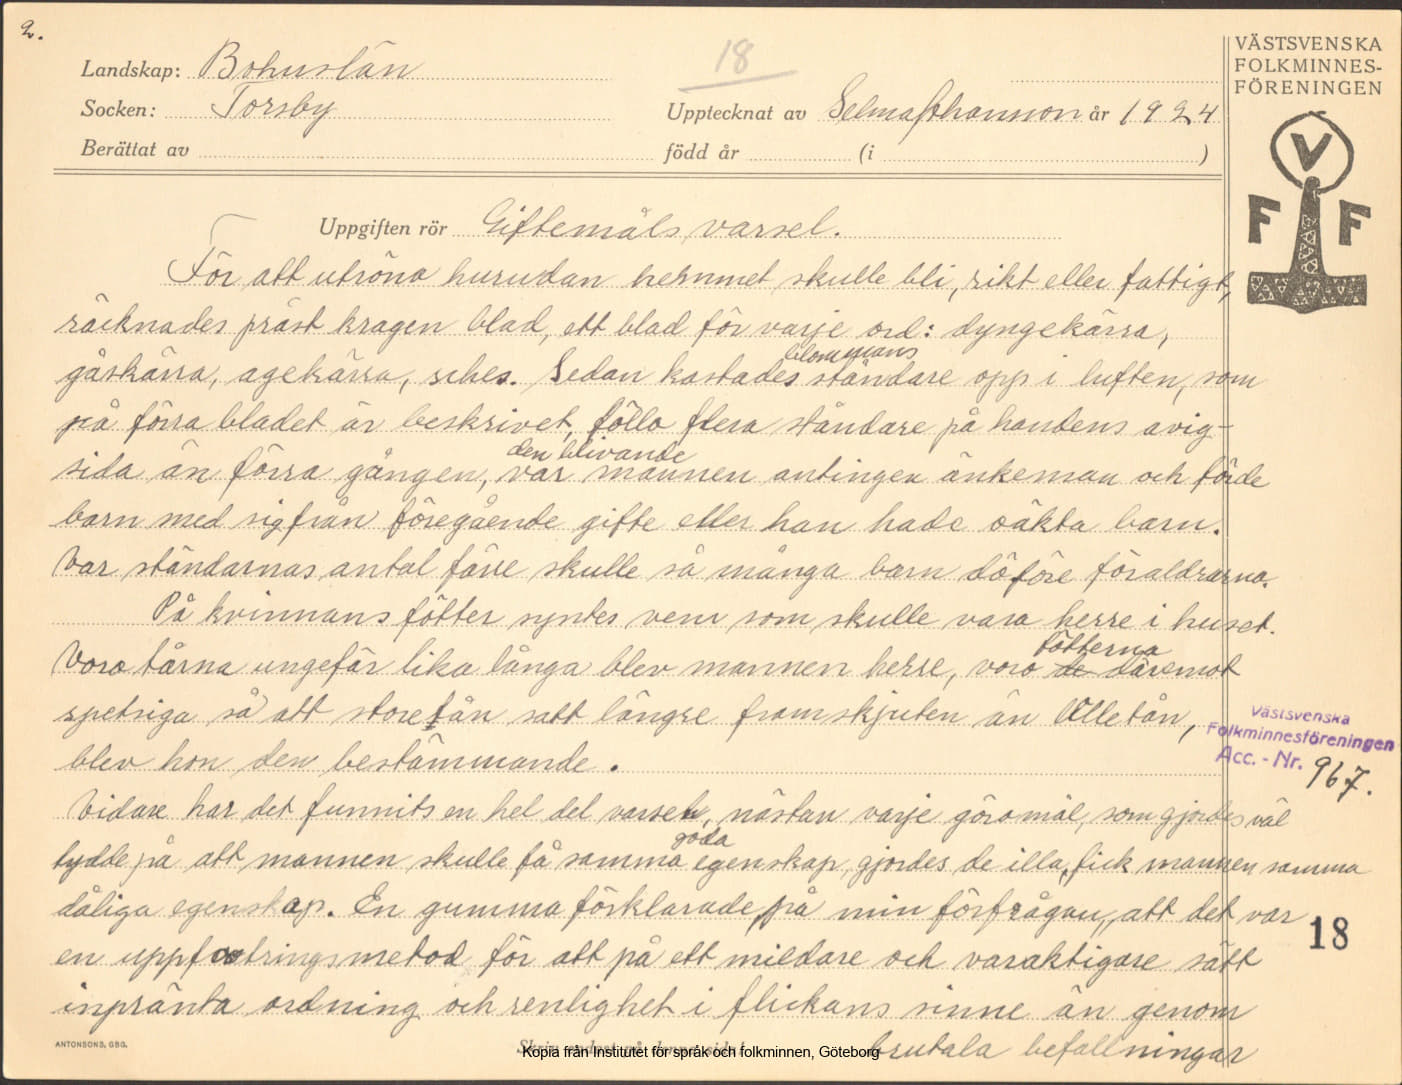 2.
18
Landskap: Bohuslän
Socken: Torsby
Upptecknat av Selma Johansson år 1924
Berättat av
född år (i )
VÄSTSVENSKA
FOLKMINNES-
FÖRENINGEN
V
F F
Uppgiften rör Giftemåls varsel.
För att utröna hurudan hemmet skulle bli, rikt eller fattigt,
räcknades präst kragen blad, ett blad för varje ord: dyngekärra,
gåskärra, agekärra, sches. Sedan kastades blommans ståndare opp i luften, som
på förra bladet är beskrivet, föllo flera ståndare på handens avig-
sida än förra gången, var den blivande mannen antingen änkeman och förde
barn med sig från föregående gifte eller han hade oäkta barn.
Var ståndarnas antal färre skulle så många barn dö före föräldrarna.
På kvinnans fötter syntes vem som skulle vara herre i huset.
Voro tårna ungefär lika långa blev mannen herre, voro de fötterna däremot
spetsiga så att storetån satt längre framskjuten än lilletån,
blev hon den bestämmande.
Vidare har det funnits en hel del varsel, nästan varje göromål, som gjordes väl
tydde på att mannen skulle få samma goda egenskap, gjordes de illa, fick mannen samma
dåliga egenskap. En gumma förklarade, på min förfrågan, att det var
en uppfostringsmetod för att på ett mildare och varaktigare sätt
inpränta ordning och renlighet i flickans sinne än genom
brutala befallningar
Västsvenska
Folkminnesföreningen
Acc. - Nr. 967.
18
ANTONSONS, GBG.
Skriv endast på denna sida!
Kopia från Institutet för språk och folkminnen, Göteborg